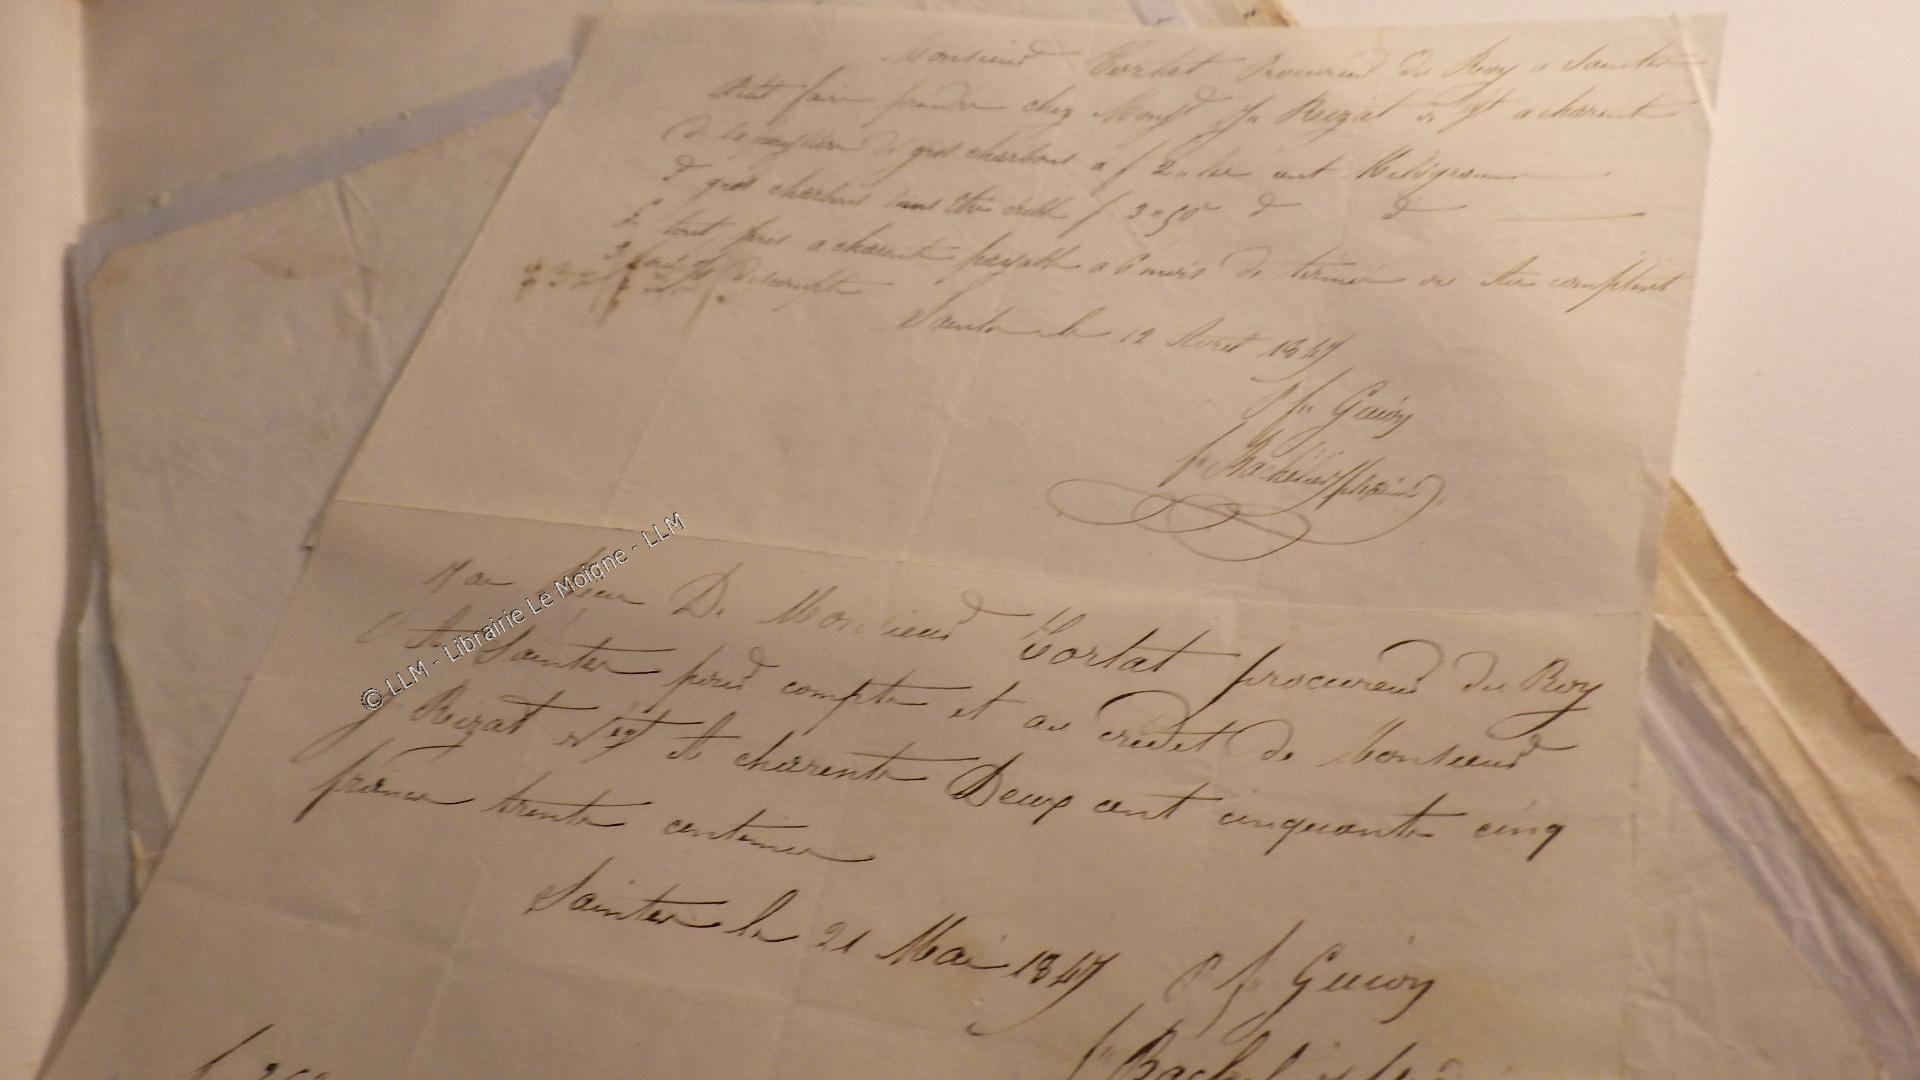 Monsieur Tortat Procureur du Roy a Saintes
faire prendre chez Monsr Jn Rezat a charente
de gros charbons a f 2 le cent Kilogrammes
d gros charbons sans être f 3 " 50c d d
tout pris a charente payable a 6 mois de terme ou au comptant
3 Descompte
Sainte le 12 Avril 1847
P fn Guion
fn
De Monsieur Tortat procureur du Roy
A Saintes pour compte et au crédit de Monsieur
J Rezat Ngt A charente Deux cent cinquante cinq
francs trente centimes
Saintes le 21 Mai 1847 P fn Guion
© LLM - Librairie Le Moigne - LLM